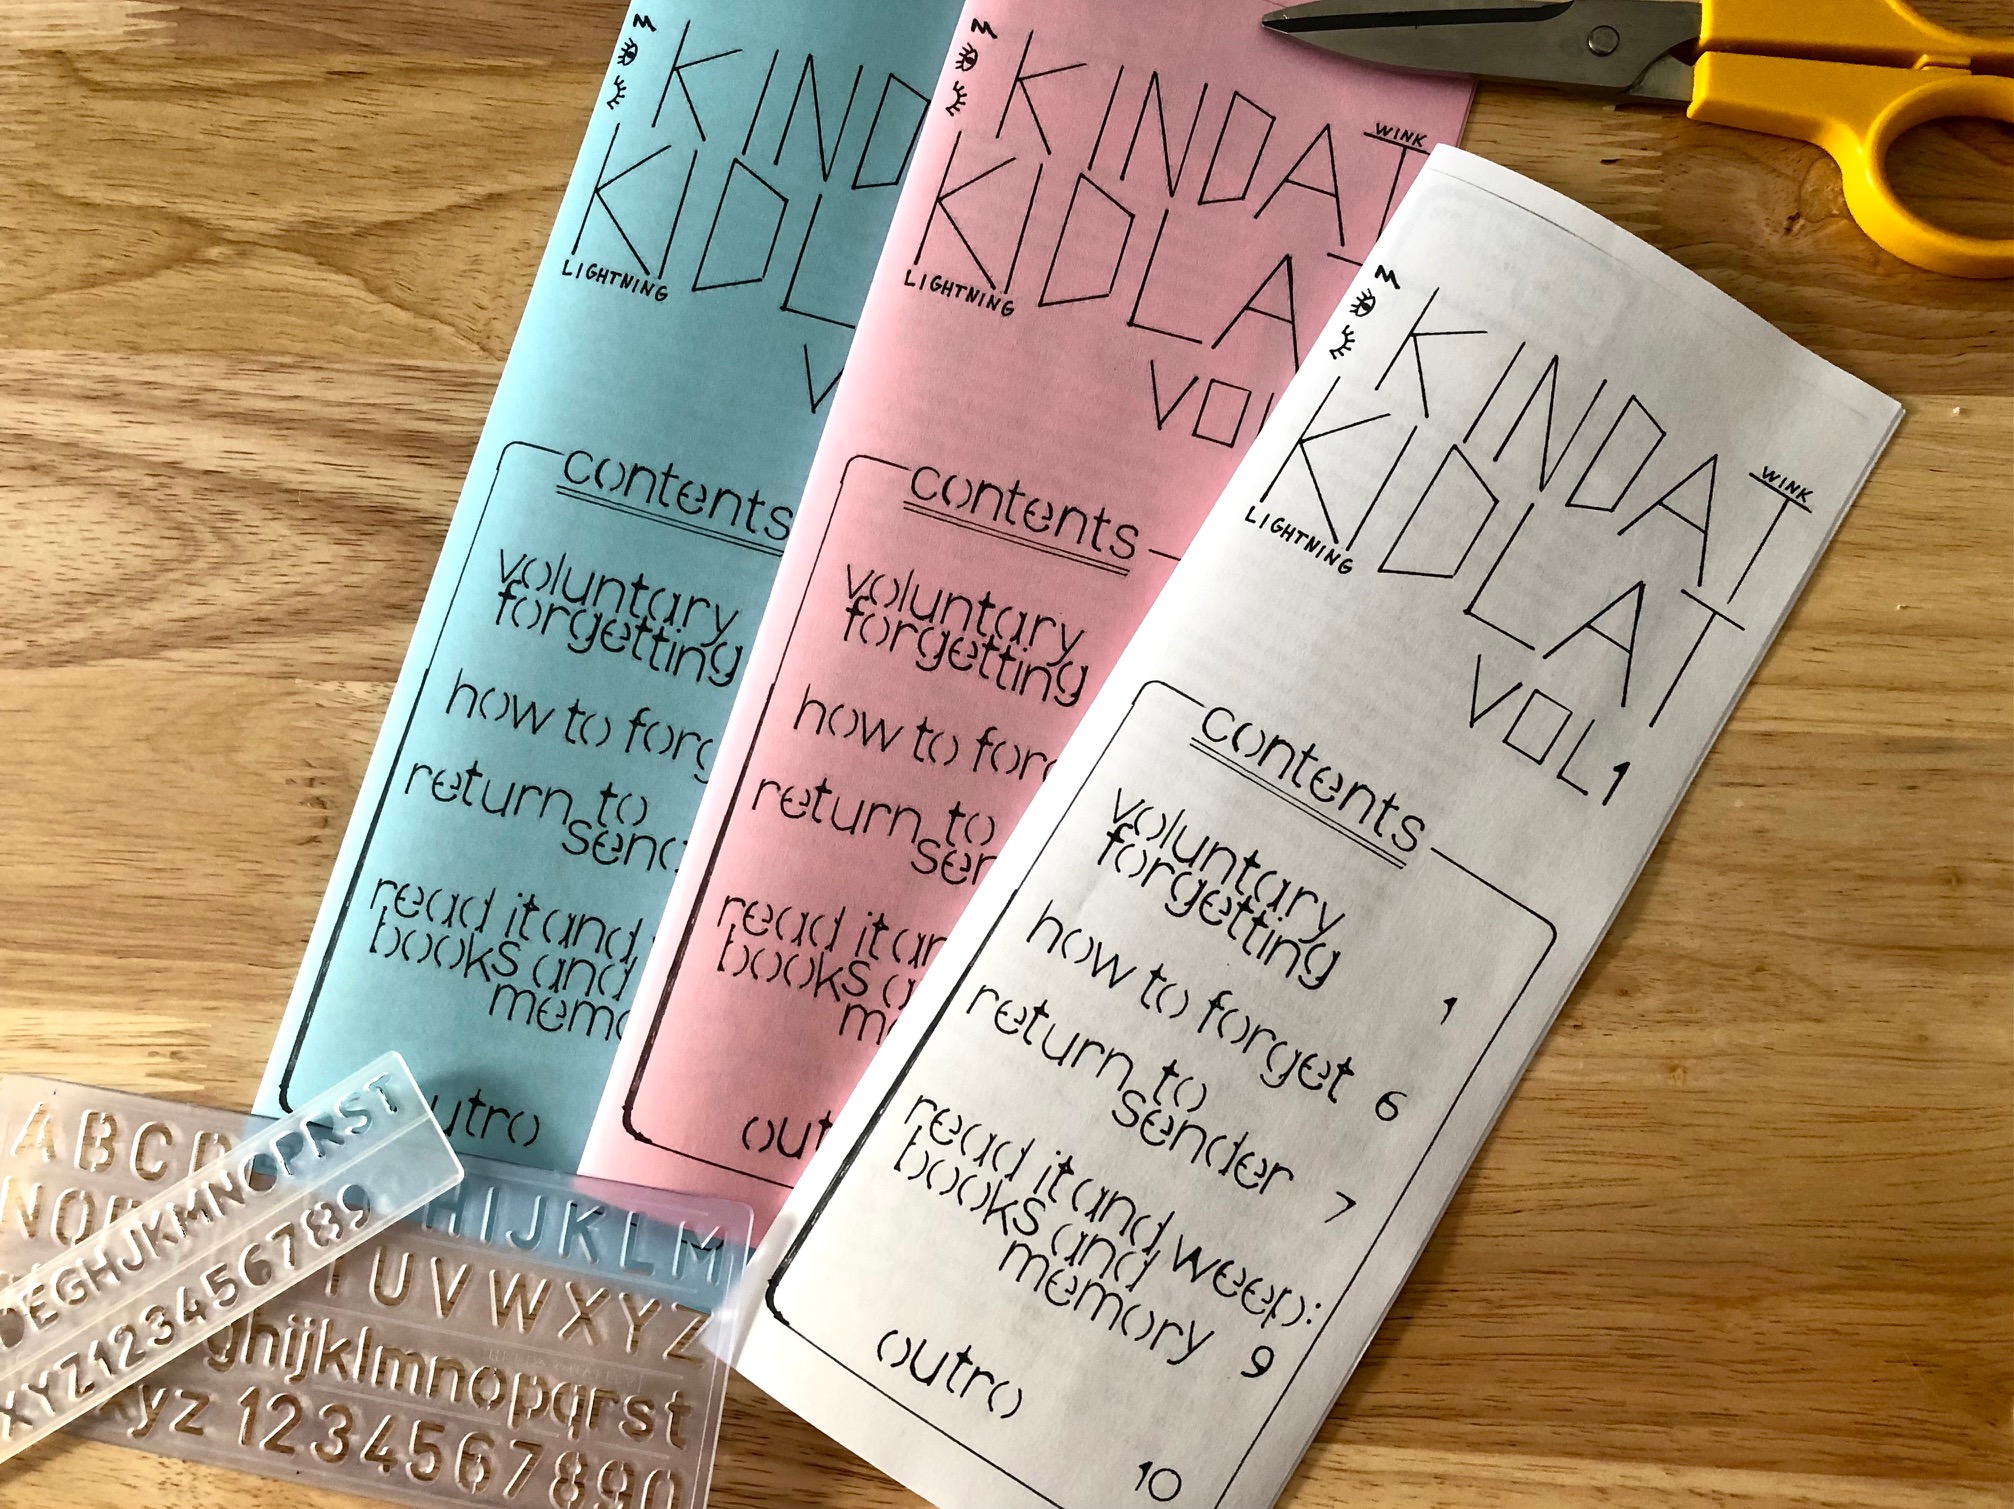 KIND
KIDL
LIGHTNING
V
contents
voluntary
forgetting
how to forg
return to
send
read it and
books and
memo
utro
WINK
KINDAT
KIDLA
LIGHTNING
VOL
contents
voluntary
forgetting
how to forg
return to
sen
read it an
books a
m
out
WINK
KINDAT
KIDLAT
LIGHTNING
VOL 1
contents
voluntary
forgetting 1
how to forget 6
return to
sender 7
read it and weep:
books and
memory 9
outro
10
ABCD HIJKLM
NO TUVWXYZ
ghijklmnopqrst
xyz 1234567890
DEGHJKMNOPRST
XYZ123456789